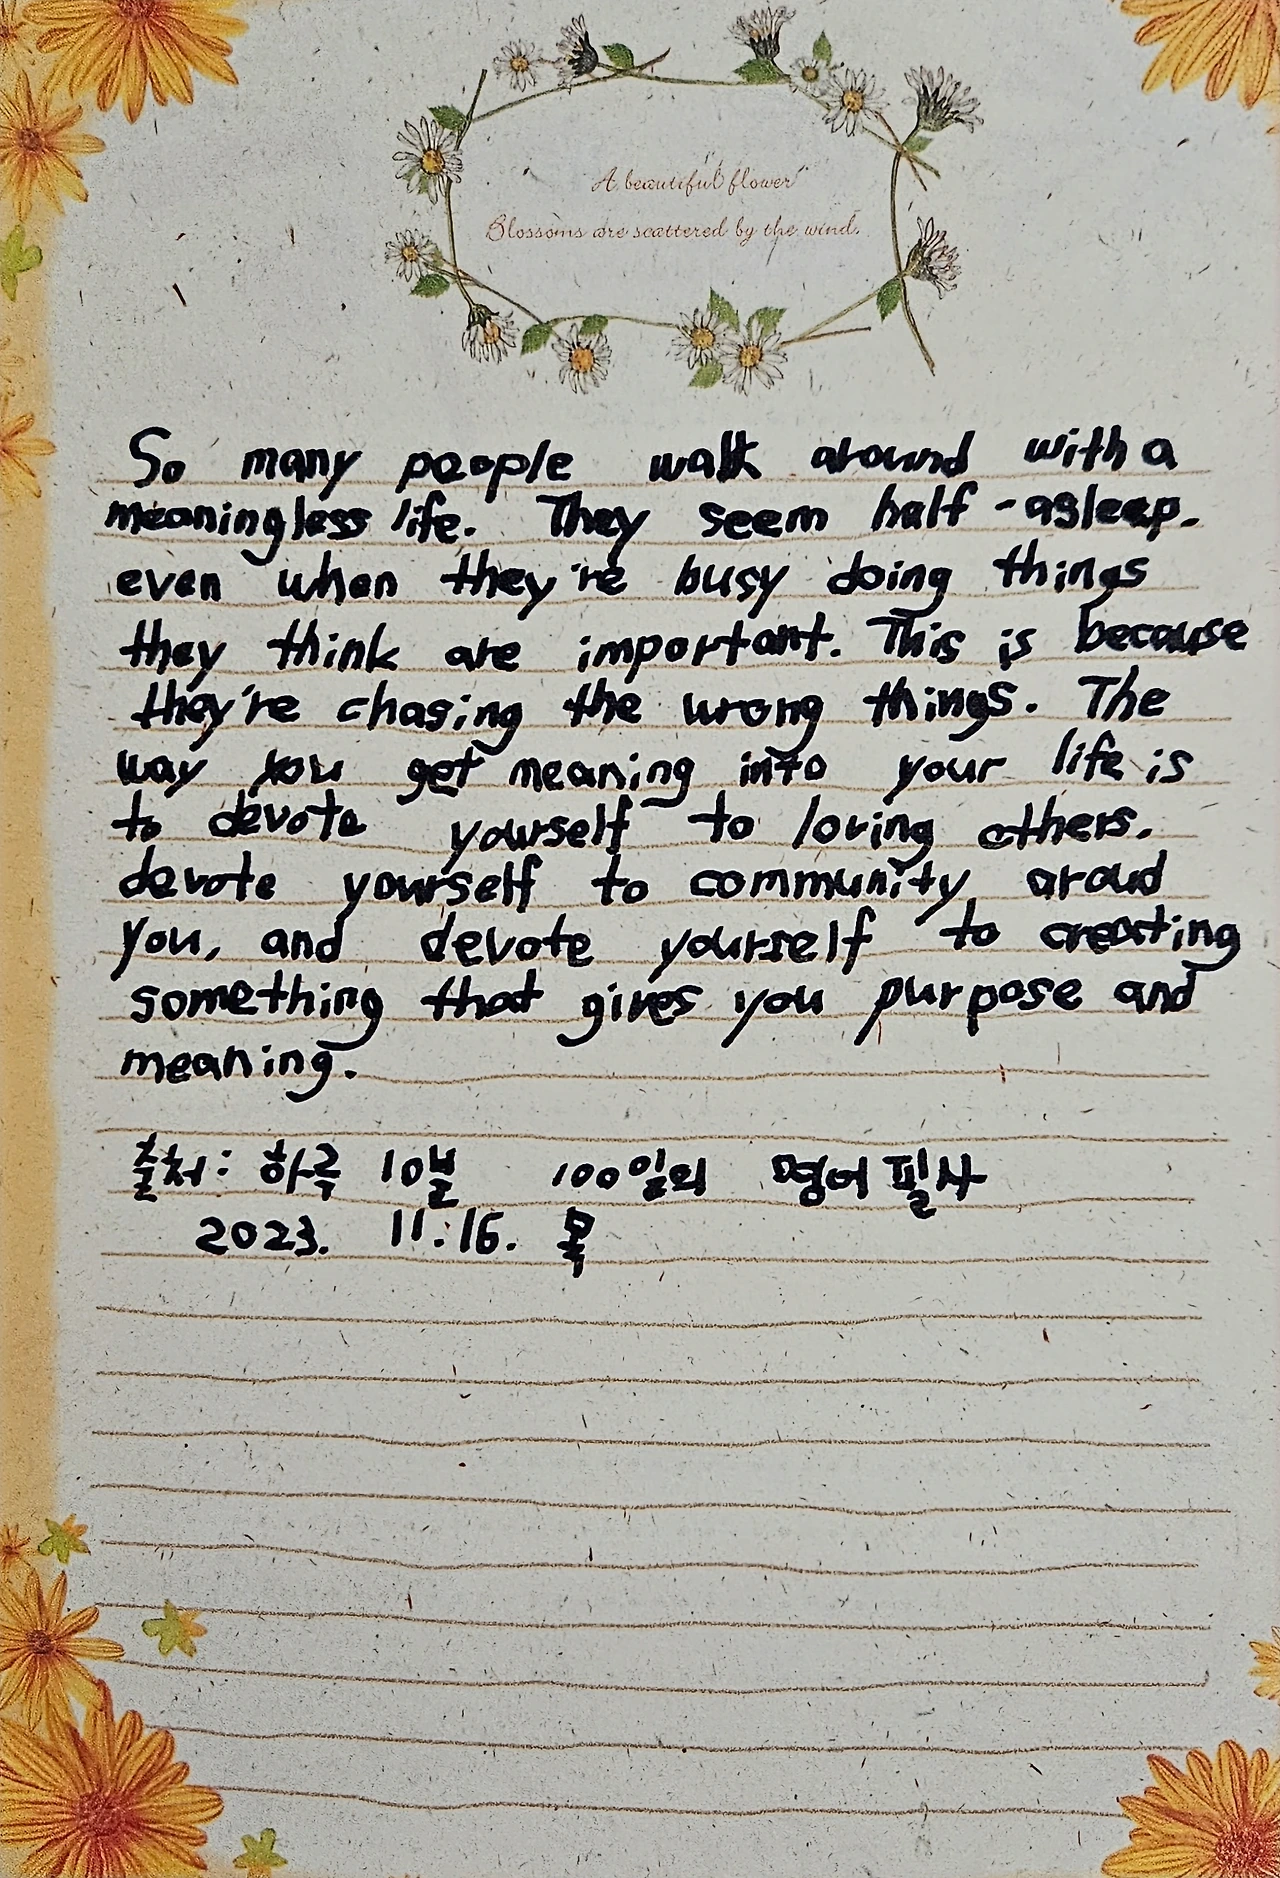 A beautiful flower
Blossoms are scattered by the wind.
So many people walk around with a
meaningless life. They seem half-asleep.
even when they're busy doing things
they think are important. This is because
they're chasing the wrong things. The
way you get meaning into your life is
to devote yourself to loving others.
devote yourself to community aroud
you, and devote yourself to creating
something that gives you purpose and
meaning.
출처: 하루 10분 100일의 영어 필사
2023. 11.16. 목